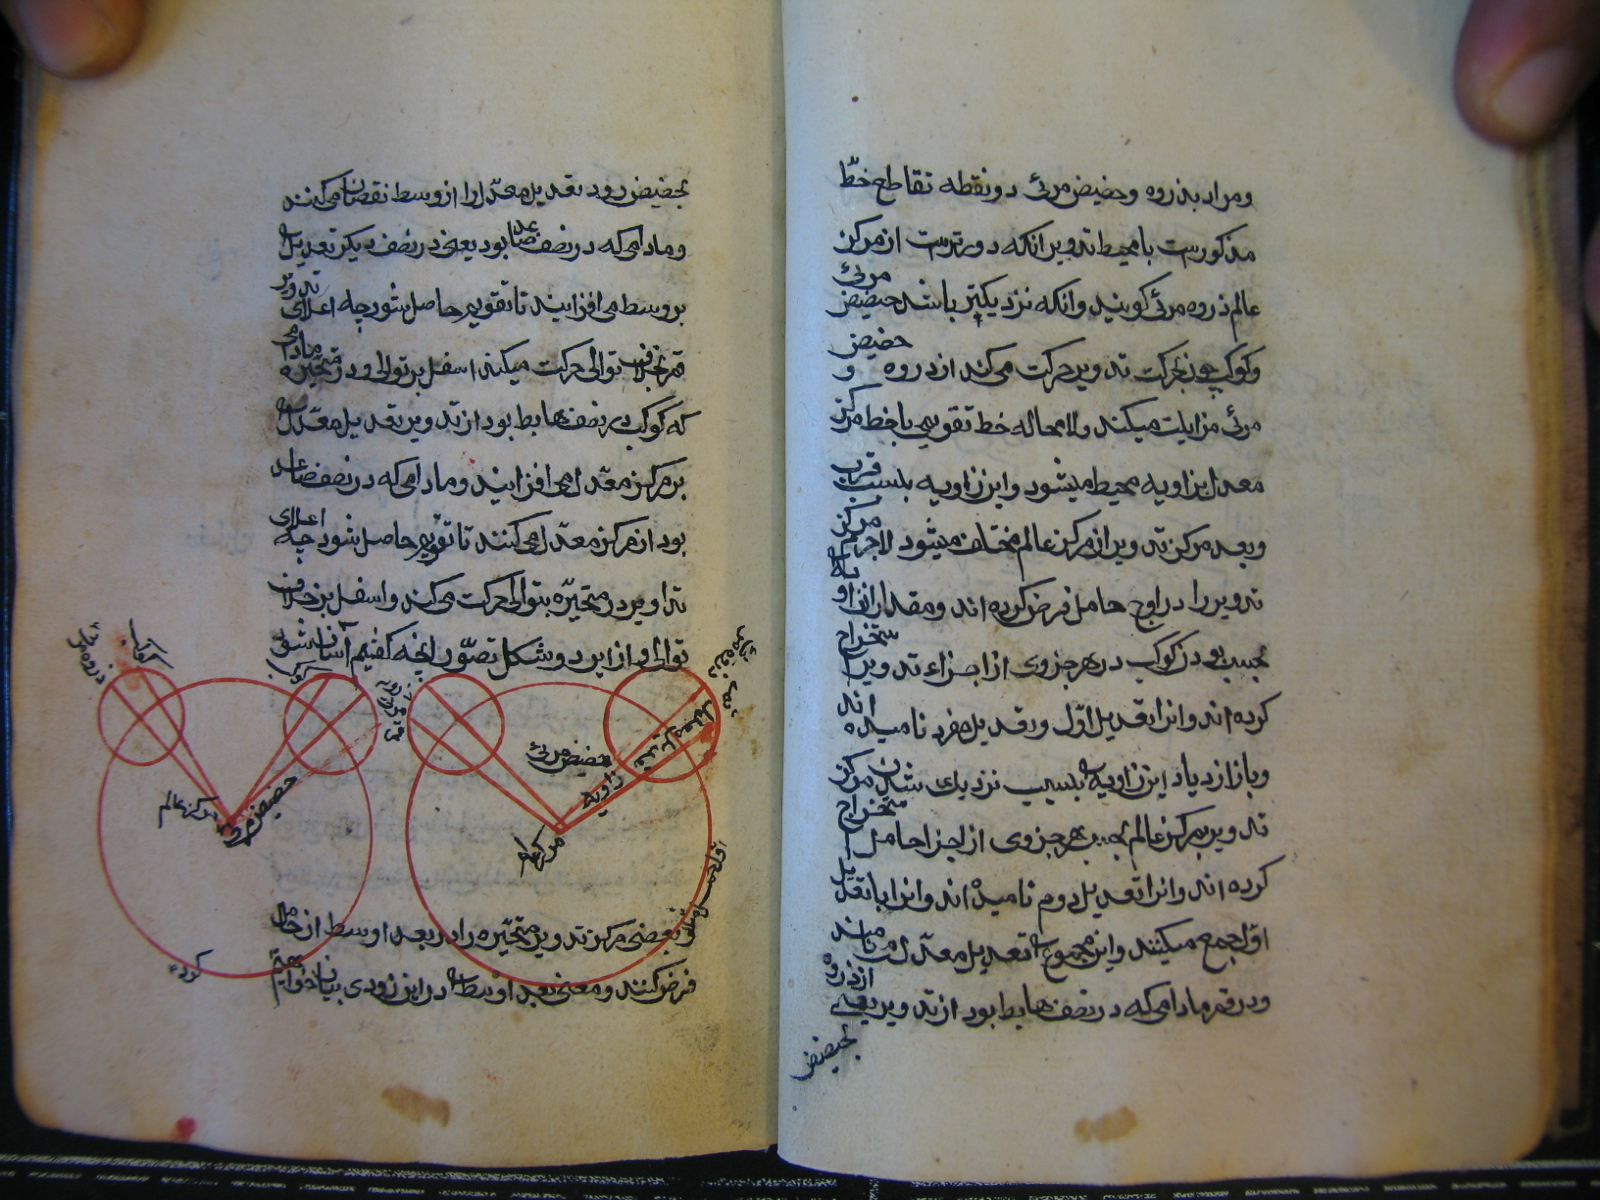 ومراد بذروه وحضیض مرئی دو نقطه تقاطع خطّ
مذکورست با محیط تدویر انکه دورترست از مرکز
عالم ذروه مرئی کویند وانکه نزدیکتر باشد حضیض مرئی
وکوکب چون بحرکت تدویر حرکت می کند از ذروه و حضیض
مرئی مزایلت میکند ولا محاله خط تقویمی با خط مرکز
معدل بزاویه محیط میشود واین زاویه بسبب قرب
وبعد مرکز تدویر از مرکز عالم مختلف میشود لاجرم مرکز
تدویر را در اوج حامل فرض کرده اند ومقدار ان زاویه
بحسب بودن کوکب در هر جزوی از اجزاء تدویر استخراج
کرده اند وانرا تعدیل اوّل وتعدیل مفرد نامیده اند
وباز ازدیاد این زاویه بسبب نزدیک شدن مرکز
تدویر بمرکز عالم بحسب هر جزوی از اجزا حامل استخراج
کرده اند وانرا تعدیل دوم نامیده اند وانرا با تعدیل
اوّل جمع میکنند واین مجموع را تعدیل معدّل نامند
ودر قمر مادامی که در نصف هابط بود از تدویر یعنی از ذروه
بحضیض
بحضیض رود تعدیل معدّل را از وسط نقصان می کنند
ومادامی که در نصف صاعد بود یعنی در نصف دیکر تعدیل را
بر وسط می افزایند تا تقویم حاصل شود چه اعلای تدویر
قمر بخلاف توالی حرکت میکند اسفل بر توالی ودر متحیّره مادامی
که کوکب در نصف هابط بود از تدویر تعدیل معدّل را
بر مرکز معدّل می افزایند ومادامی که در نصف صاعد
بود از مرکز معدّل می کنند تا تقویم حاصل شود چه اعلای
تداویر در متحیّره بتوالی حرکت می کند واسفل بر خلاف
توالی واز این دو شکل تصوّر انچه کفتیم آسان شود
کوکب
کوکب
حضیض مرئی
زاویه
مرکز عالم
حضیض مرئی
مرکز عالم
وبعضی مرکز تدویر متحیّره را در بعد اوسط از حامل
فرض کنند ومعنی بعد اوسط را در این زودی بیان خواهیم